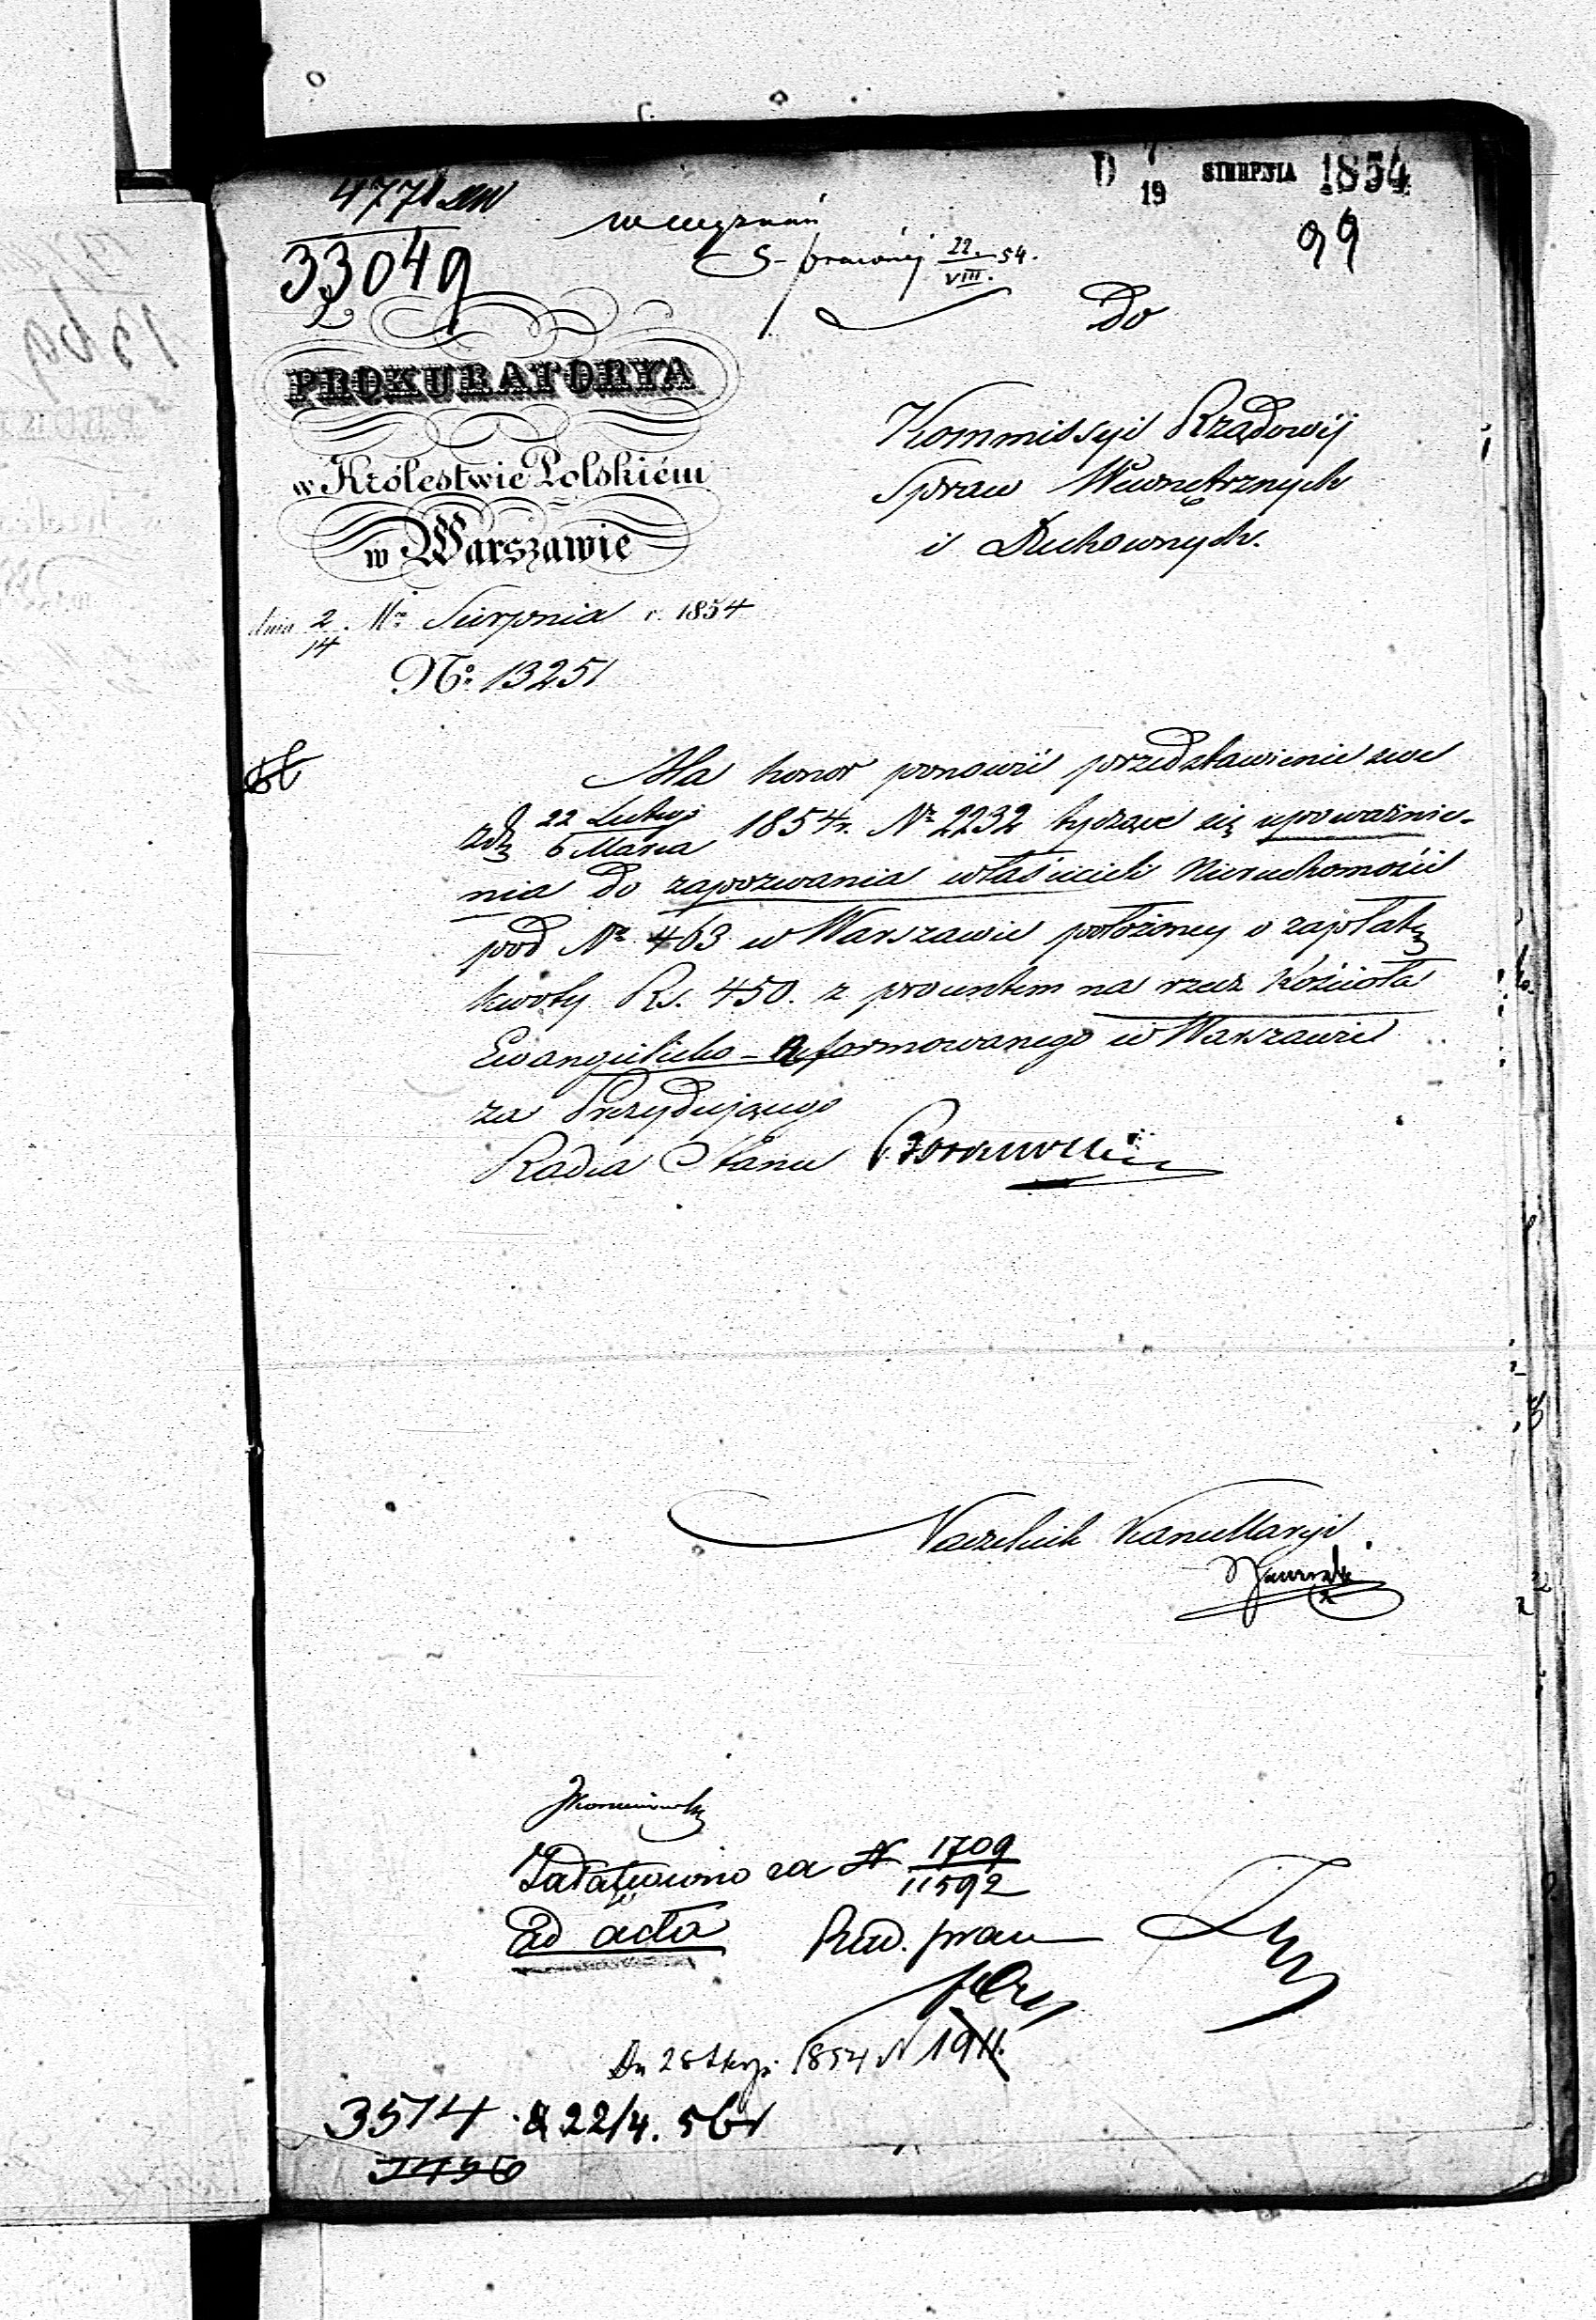 D 7/19 SIERPNIA 1854
99
33049
wyznań
S. prawnéj 22/VIII. 54.
Do
PROKURATORYA
w Królestwie Polskiém
w Warszawie
dnia 2/14 Mca Sierpnia r. 1854
No: 13251
Kommissyi Rządowéj
Spraw Wewnętrznych
i Duchownych.
Ma honor ponowić przedstawienie swe
z dnia 22 Lutego/6 Marca 1854 r. Nr 2232 tyczące się upoważnie-
nia do zapozwania właścicieli Nieruchomości
pod Nr 463 w Warszawie położonéj o zapłatę
kwoty Rs. 450. z procentem na rzecz Kościoła
Ewangielicko-Reformowanego w Warszawie
za Prezydującego
Radca Stanu
Naczelnik Kancellaryi
Załatwiono za N 1709/11592
Ad acta
1854 N 1911.
3514
22/4. 56